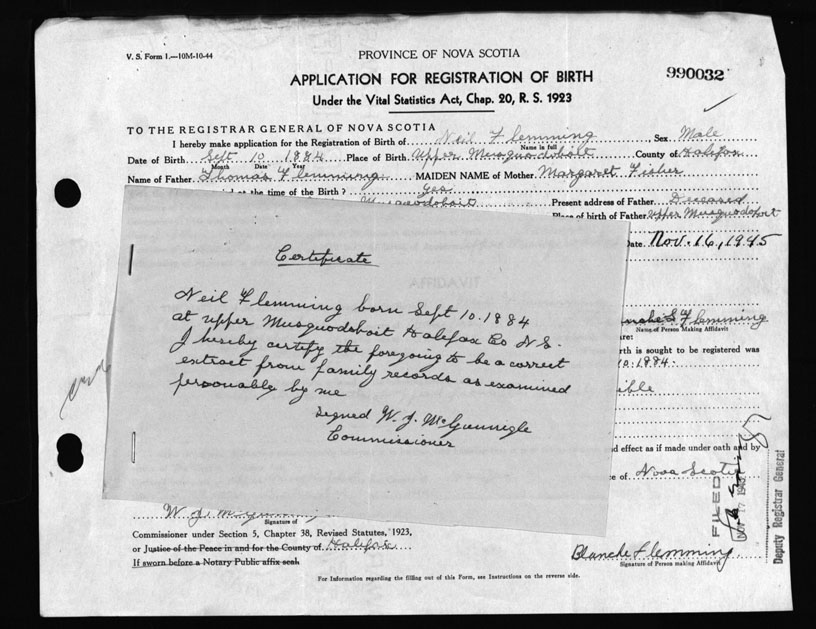 V. S. Form 1.—10M-10-44
PROVINCE OF NOVA SCOTIA
990032
APPLICATION FOR REGISTRATION OF BIRTH
Under the Vital Statistics Act, Chap. 20, R. S. 1923
TO THE REGISTRAR GENERAL OF NOVA SCOTIA
I hereby make application for the Registration of Birth of Neil Flemming Sex Male
Name in full
Date of Birth Sept 10 1884 Place of Birth Upper Musquodoboit County of Halifax
Month Date Year
Name of Father Thomas Flemming MAIDEN NAME of Mother Margaret Fisher
at the time of the Birth? Yes Present address of Father Deceased
Musquodoboit Place of birth of Father Upper Musquodoboit
Date Nov. 16, 1945
AFFIDAVIT
Certificate
Neil Flemming born Sept 10. 1884
at upper Musquodoboit Halifax Co N S.
I hereby certify the foregoing to be a correct
extract from family records as examined
personably by me
Signed W. J. McGunnigle
Commissioner
Flemming
Name of Person Making Affidavit
re:
rth is sought to be registered was
10. 1884.
ible
d effect as if made under oath and by
e of Nova Scotia
FILED
NOV 17 1945
Deputy Registrar General
W. J. McGunnigle
Signature of
Commissioner under Section 5, Chapter 38, Revised Statutes, 1923,
or Justice of the Peace in and for the County of Halifax
If sworn before a Notary Public affix seal.
Blanche Flemming
Signature of Person making Affidavit
For Information regarding the filling out of this Form, see Instructions on the reverse side.